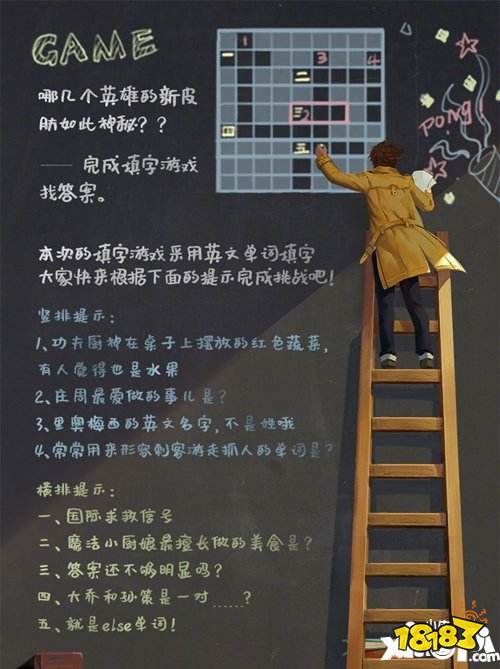 GAME
1
一
3
4
二
三
2
四
五
哪几个英雄的新皮
肤如此神秘??
—— 完成填字游戏
找答案。
PONG!
本次的填字游戏采用英文单词填字
大家快来根据下面的提示完成挑战吧!
竖排提示:
1、功夫厨神在桌子上摆放的红色蔬菜,
有人觉得也是水果
2、庄周最爱做的事儿是?
3、里奥梅西的英文名字,不是姓哦
4、常常用来形容刺客游走抓人的单词是?
横排提示:
一、国际求救信号
二、魔法小厨娘最擅长做的美食是?
三、答案还不够明显吗?
四、大乔和孙策是一对_____?
五、就是else单词!
18183
.com